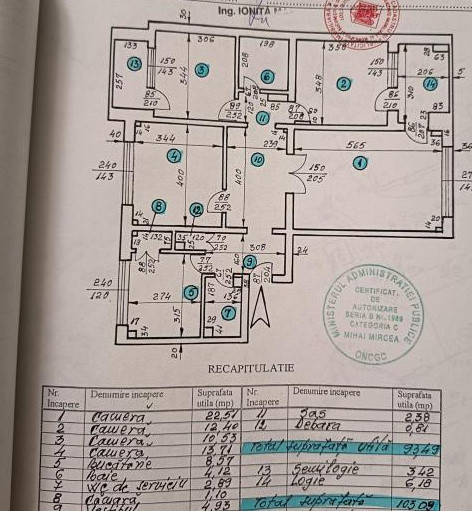 Ing. IONIȚĂ
30
133
306
198
350
206
63
5
13
257
150
143
344
3
208
6
2
348
150
143
14
310
85
210
89
232
85
87
208
85
210
86
11
40
344
239
565
36
240
143
4
400
10
400
150
205
1
88
252
8
12
132
35
120
70
252
308
24
9
88
77
252
87
204
240
120
274
5
315
187
7
17
34
29
20
MINISTERUL ADMINISTRATIEI PUBLICE
CERTIFICAT
DE
AUTORIZARE
SERIA B Nr. 1989
CATEGORIA C
MIHAI MIRCEA
ONCGC
RECAPITULATIE
Nr. Incapere Denumire incapere Suprafata utila (mp) Nr. Incapere Denumire incapere Suprafata utila (mp)
1 Camera 22,51 11 Sas 2,38
2 Camera 12,40 12 Debara 0,81
3 Camera 10,53
4 Camera 13,71 Total suprafață utilă 93,49
5 Bucătărie 8,57
Baie 4,12 13 Semilogie 3,42
7 Wc de serviciu 2,89 14 Logie 6,18
8 Cămară 1,10
9 4,93 Total suprafață 103,09